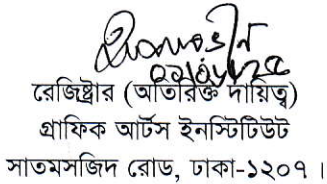 রেজিষ্ট্রার (অতিরিক্ত দায়িত্ব)
গ্রাফিক আর্টস ইনস্টিটিউট
সাতমসজিদ রোড, ঢাকা-১২০৭ ।